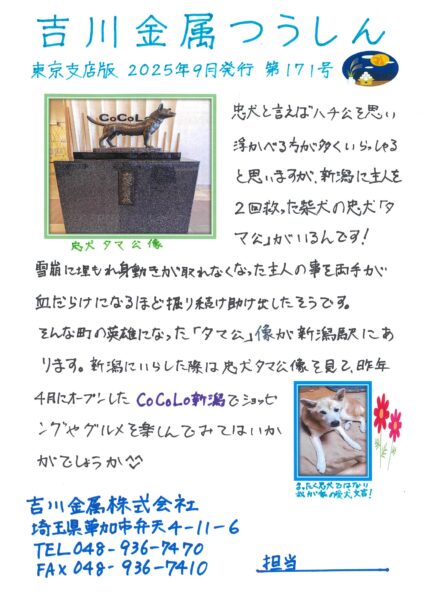 吉川金属つうしん
東京支店版 2025年9月発行 第171号
CoCoLo
忠犬タマ公像
忠犬と言えばハチ公を思い
浮かべる方が多くいらっしゃる
と思いますが、新潟に主人を
2回救った柴犬の忠犬「タ
マ公」がいるんです!
雪崩に埋もれ身動きが取れなくなった主人の事を両手が
血だらけになるほど掘り続け助け出したそうです。
そんな町の英雄になった「タマ公」像が新潟駅にあ
ります。新潟にいらした際は忠犬タマ公像を見て、昨年
4月にオープンしたCoCoLo新潟でショッピ
ングやグルメを楽しんでみてはいか
がでしょうか
まったく忠犬ではない
我が家の柴犬文吉!
吉川金属株式会社
埼玉県草加市弁天4-11-6
TEL 048-936-7470
FAX 048-936-7410
担当